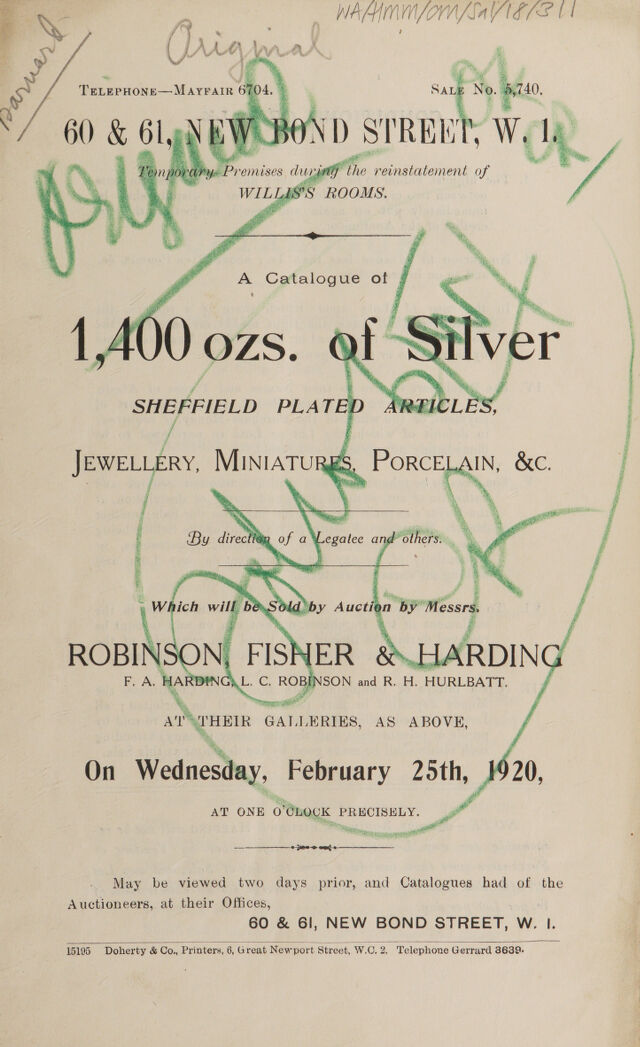 WA/HMM/CM/Sal/18/311
Barnard
Original
TELEPHONE—MAYFAIR 6704. SALE No. 5,740.
60 & 61, NEW BOND STREET, W. 1.
Original
OK
OR
Temporary Premises during the reinstatement of
WILLIS'S ROOMS.
A Catalogue of
1,400 ozs. of Silver
SHEFFIELD PLATED ARTICLES,
JEWELLERY, MINIATURES, PORCELAIN, &C.
By direction of a Legatee and others.
Which will be Sold by Auction by Messrs.
OR
ROBINSON, FISHER & HARDING
F. A. HARDING, L. C. ROBINSON and R. H. HURLBATT.
AT THEIR GALLERIES, AS ABOVE,
On Wednesday, February 25th, 1920,
AT ONE O'CLOCK PRECISELY.
May be viewed two days prior, and Catalogues had of the
Auctioneers, at their Offices,
60 & 61, NEW BOND STREET, W. 1.
15195 Doherty & Co., Printers, 6, Great Newport Street, W.C. 2. Telephone Gerrard 3639.